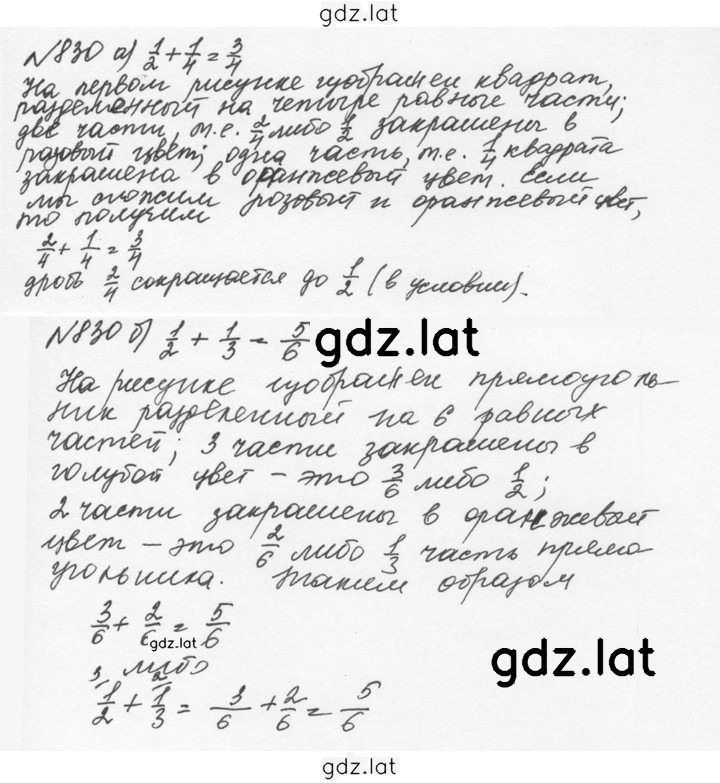 gdz.lat
№830 а) 1/2 + 1/4 = 3/4
На первом рисунке изображен квадрат,
разделенный на четыре равные части;
две части, т.е. 2/4 либо 1/2 закрашены в
розовый цвет; одна часть, т.е. 1/4 квадрата
закрашена в оранжевый цвет. Если
мы сложим розовый и оранжевый цвет,
то получим
2/4 + 1/4 = 3/4
дробь 2/4 сокращается до 1/2 (в условии).
№830 б) 1/2 + 1/3 = 5/6
gdz.lat
На рисунке изображен прямоуголь
ник разделенный на 6 равных
частей; 3 части закрашены в
голубой цвет – это 3/6 либо 1/2;
2 части закрашены в оранжевый
цвет – это 2/6 либо 1/3 часть прямо
угольника. Таким образом
3/6 + 2/6 = 5/6
gdz.lat
либо
gdz.lat
3 2
1/2 + 1/3 = 3/6 + 2/6 = 5/6
gdz.lat